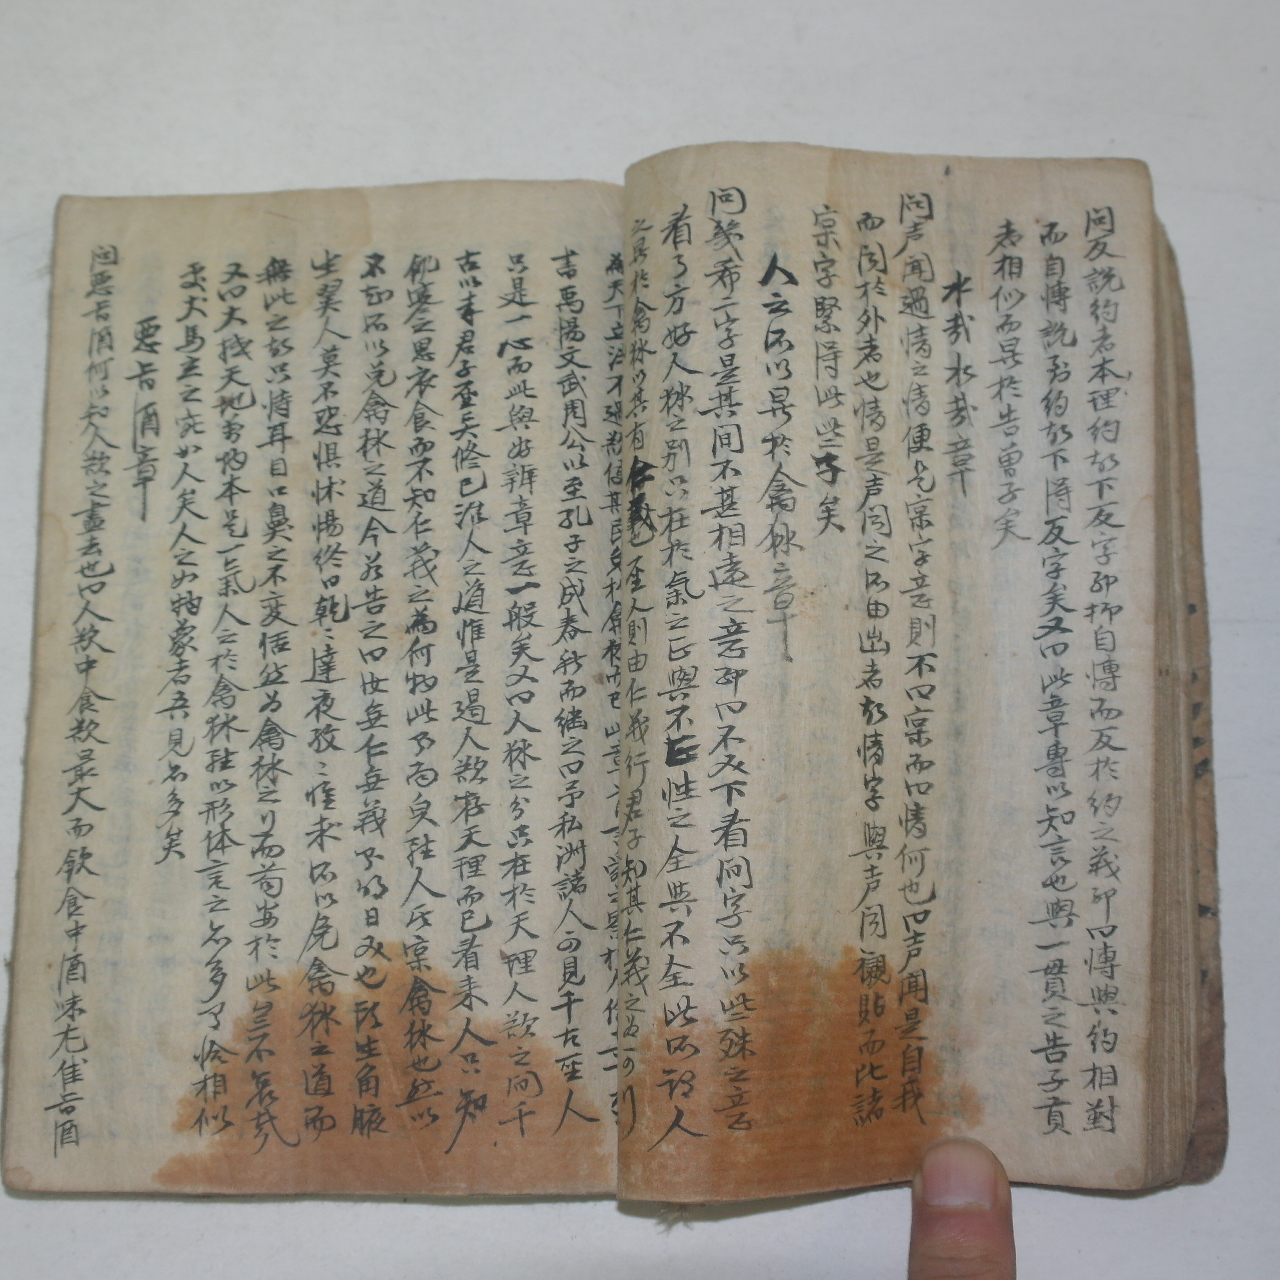 問反說約者本理約故下反字耶抑自博而反於約之義耶曰博與約相對
而自博說到約故下得反字矣又曰此章專以知言也與一貫之告子貢
者相似而異於告曾子矣
水哉水哉章
問声聞過情之情便是宲字意則不曰宲而曰情何也曰声聞是自我
而聞於外者也情是声聞之所由出者故情字與声聞襯貼而比諸
宗字緊得此些子矣
人之所以異於禽獸章
問幾希二字是其間不甚相遠之意耶曰不必下看間字只以些殊之意
看了方好人獸之別只在於氣之正與不正性之全與不全此所謂人
之異於禽獸以其有仁義也聖人則由仁義行君子知其仁義之
書禹湯文武周公以至孔子之成春秋而継之曰予私淑諸人可見千古聖人
只是一心而此與好辨章意一般矣又曰人獸之分只在於天理人欲之間千
古以来君子聖夫修己治人之道惟是遏人欲存天理而已看来人只知
飢寒之思衣食而不知仁義之為何物此乃面臾雖人反宲禽獸也然以
不知所以免禽獸之道今若告之曰汝無仁無義乃明日必也頭生角腋
生翼人莫不恐惧怵惕終日乾〻達夜孜〻惟求所以免禽獸之道而
無此之故只恃耳目口鼻之不変恬然為禽獸之行而苟安於此豈不哀哉
又曰大哉天地萬物本是一氣人之於禽獸雖以形体言之亦多有恰相似
故犬馬 之 如人矣人之如物蒙者吾見亦多矣
惡旨酒章
問惡旨酒何以知人欲之盡去也曰人欲中食欲最大而飲食中酒味尤佳旨酒